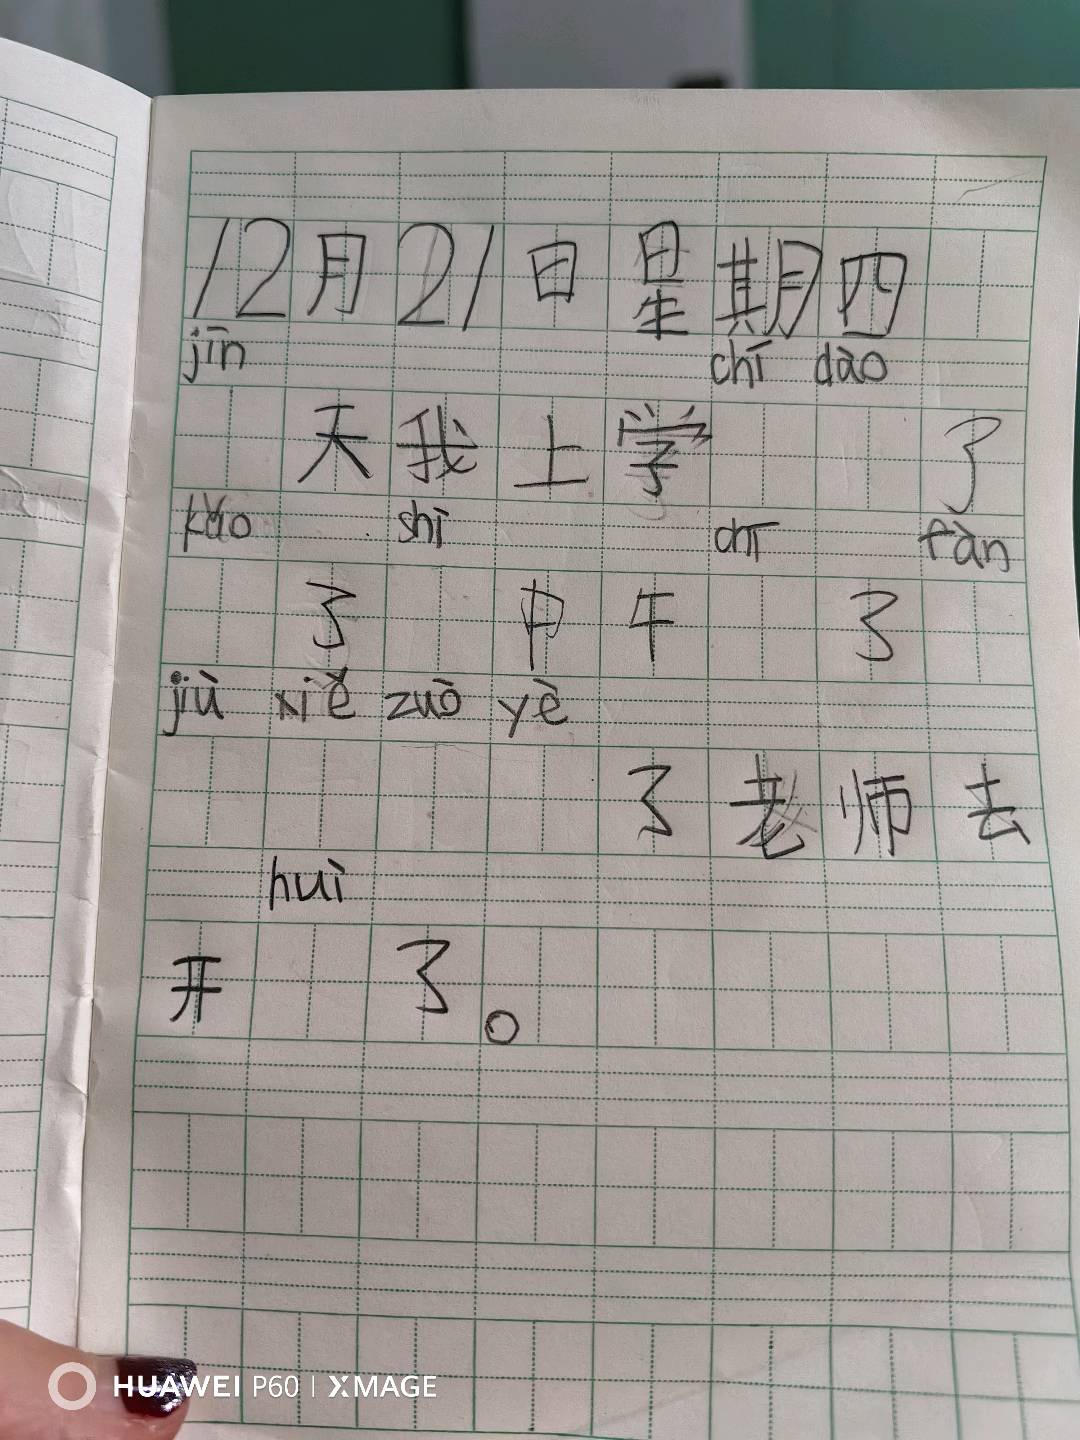 12月21日星期四
jīn 天我上学 chī dào 了
kǎo 了 shì 中午 chī 了 fàn
jiù xiě zuò yè 了老师去
开 huì 了。
HUAWEI P60 | XMAGE